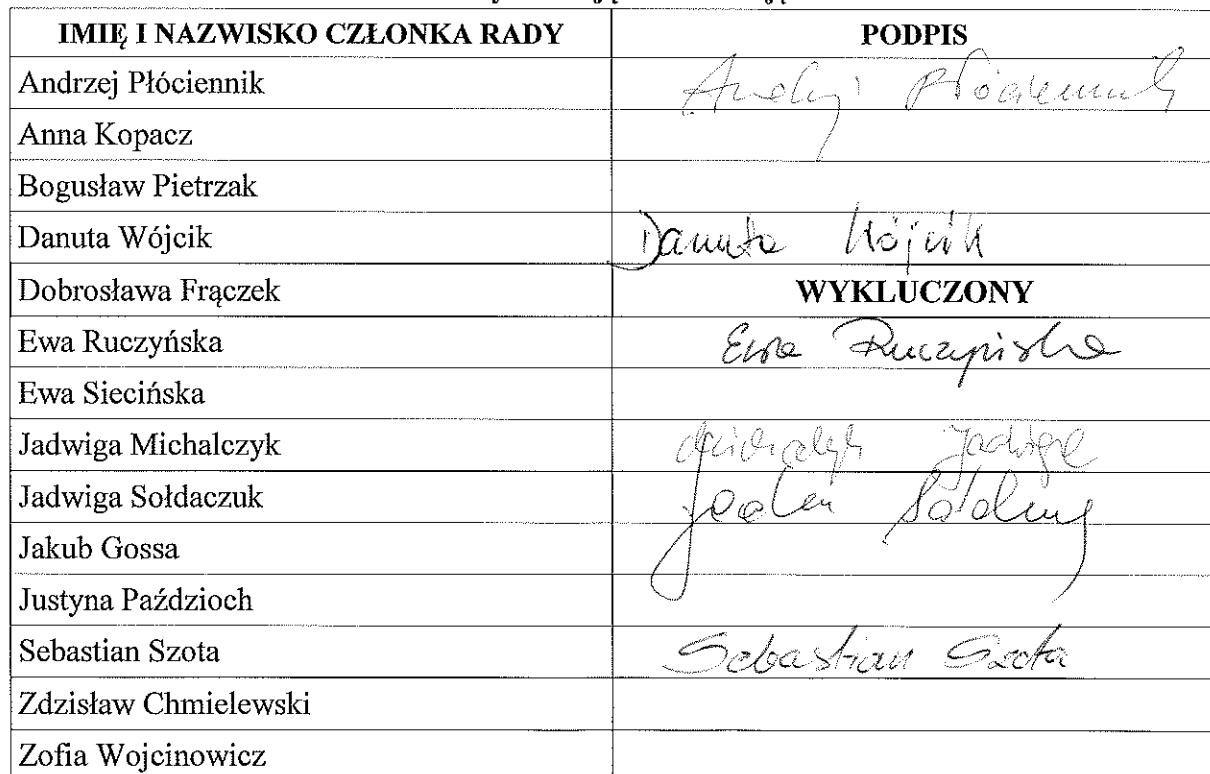 IMIĘ I NAZWISKO CZŁONKA RADY PODPIS
Andrzej Płóciennik Andrzej Płóciennik
Anna Kopacz
Bogusław Pietrzak
Danuta Wójcik Danuta Wójcik
Dobrosława Frączek WYKLUCZONY
Ewa Ruczyńska Ewa Ruczyńska
Ewa Siecińska
Jadwiga Michalczyk Michalczyk Jadwiga
Jadwiga Sołdaczuk
Jakub Gossa
Justyna Paździoch
Sebastian Szota Sebastian Szota
Zdzisław Chmielewski
Zofia Wojcinowicz